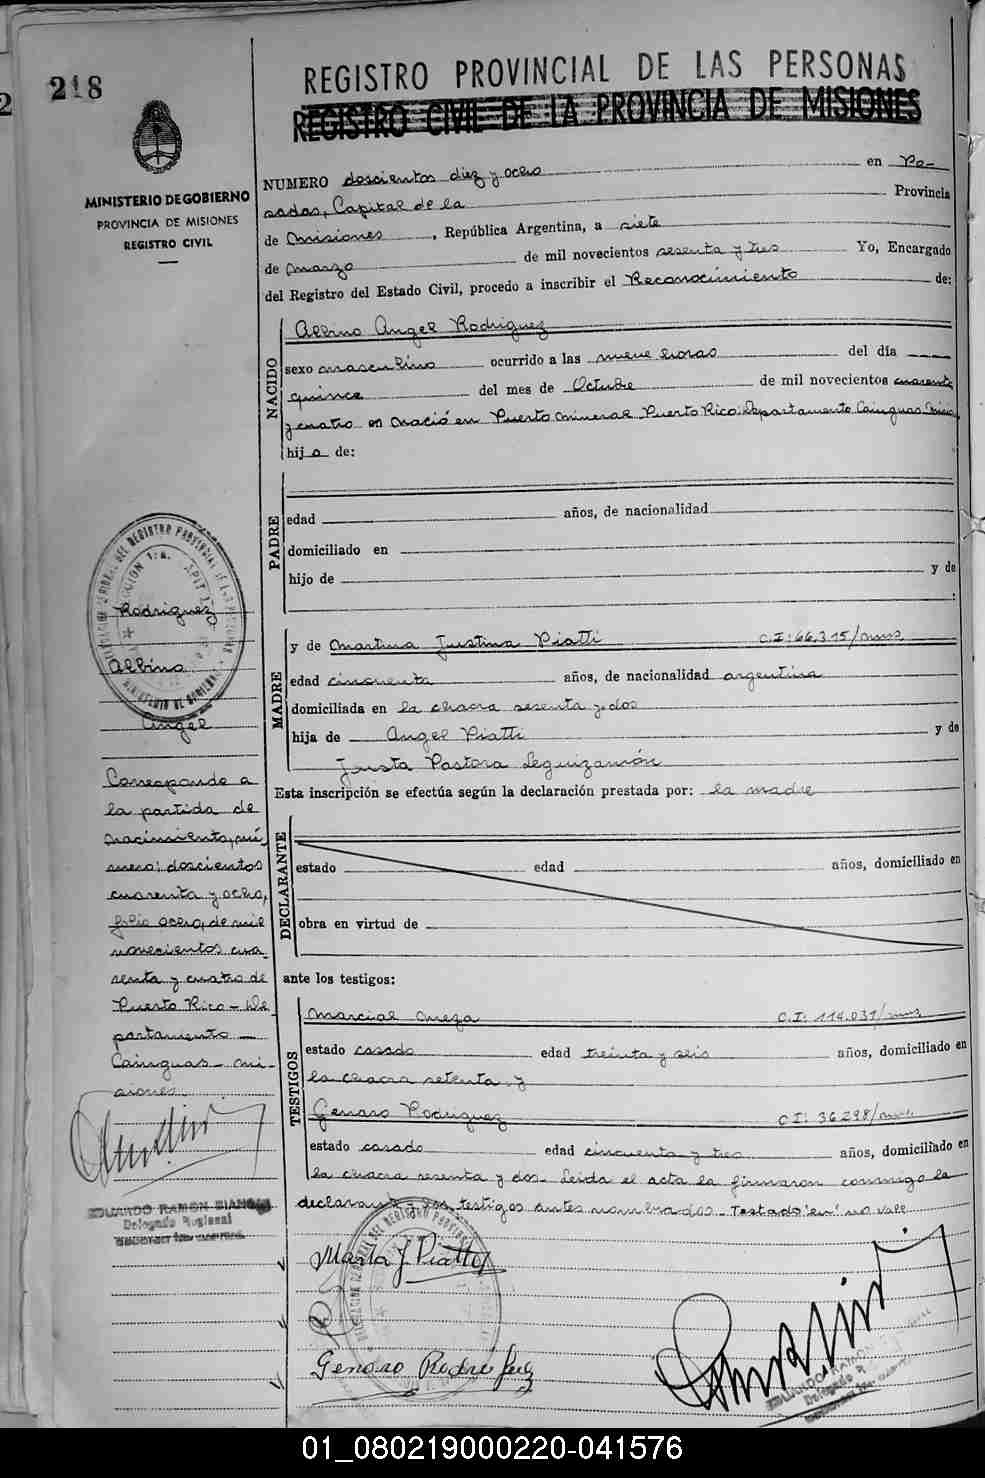 218
REGISTRO PROVINCIAL DE LAS PERSONAS
REGISTRO CIVIL DE LA PROVINCIA DE MISIONES
MINISTERIO DE GOBIERNO
PROVINCIA DE MISIONES
REGISTRO CIVIL
NUMERO doscientos diez y ocho en Po-
sadas, Capital de la Provincia
de Misiones, República Argentina, a siete
de marzo de mil novecientos sesenta y tres Yo, Encargado
del Registro del Estado Civil, procedo a inscribir el Reconocimiento de:
NACIDO
Albino Angel Rodriguez
sexo masculino ocurrido a las nueve horas del día
quince del mes de Octubre de mil novecientos cuarenta
y cuatro en nació en Puerto Mineral Puerto Rico. Departamento Cainguas
hijo de:
PADRE
edad años, de nacionalidad
domiciliado en
hijo de y de
MADRE
y de Martina Justina Piatti C.I: 66.315/mnes
edad cincuenta años, de nacionalidad argentina
domiciliada en la chacra sesenta y dos
hija de Angel Piatti y de
Justa Pastora Leguizamón
Esta inscripción se efectúa según la declaración prestada por: la madre
DECLARANTE
estado edad años, domiciliado en
obra en virtud de
ante los testigos:
TESTIGOS
Marcial Meza C.I: 114.031/mnes
estado casado edad treinta y seis años, domiciliado en
la chacra setenta y
Genaro Rodriguez CI: 36298/mnes
estado casado edad cincuenta y tres años, domiciliado en
la chacra sesenta y dos. Leida el acta la firmaron conmigo la
declarante y los testigos antes nombrados. Testado "en" no vale
Rodriguez
Albino
Angel
Corresponde a
la partida de
nacimiento, nú-
mero: doscientos
cuarenta y ocho,
folio ocho, de mil
novecientos cua-
renta y cuatro de
Puerto Rico - De
partamento
Cainguas - Mi-
siones.
EDUARDO RAMON
Delegado Regional
Marta J Piatti
Genaro Rodriguez
EDUARDO RAMON
Delegado R
01_080219000220-041576